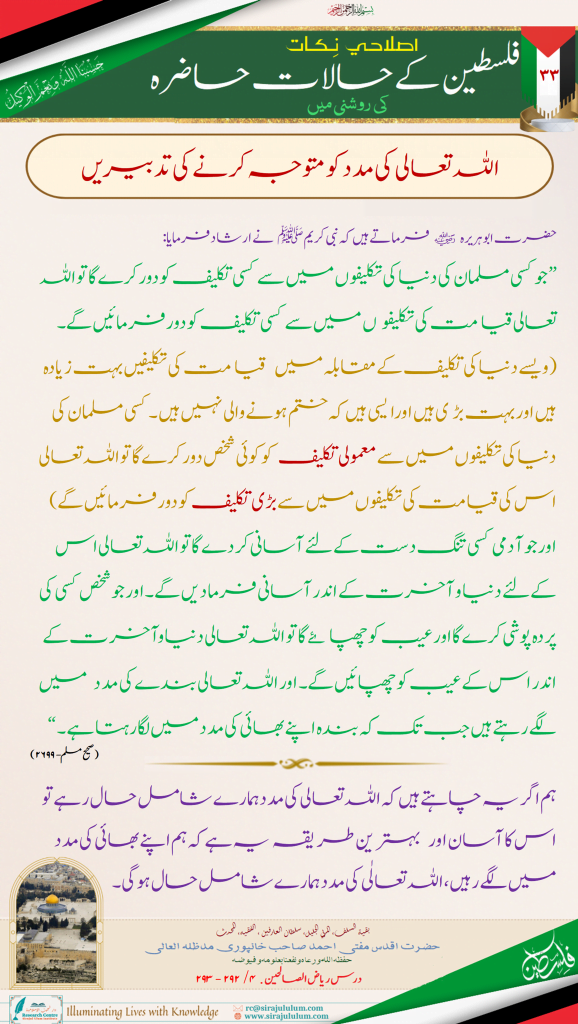 بسم اللہ الرحمن الرحیم
اصلاحي نِکات
فلسطین کے حالات حاضرہ
کی روشنی میں
حَسْبُنَا اللّٰهُ وَنِعْمَ الْوَكِيْل
۳۳
اللہ تعالی کی مدد کو متوجہ کرنے کی تدبیریں
حضرت ابوہریرہ ؓ فرماتے ہیں کہ نبی کریم ﷺ نے ارشاد فرمایا:
”جو کسی مسلمان کی دنیا کی تکلیفوں میں سے کسی تکلیف کو دور کرے گا تو اللہ
تعالی قیامت کی تکلیفوں میں سے کسی تکلیف کو دور فرمائیں گے۔
(ویسے دنیا کی تکلیف کے مقابلہ میں قیامت کی تکلیفیں بہت زیادہ
ہیں اور بہت بڑی ہیں اور ایسی ہیں کہ ختم ہونے والی نہیں ہیں۔ کسی مسلمان کی
دنیا کی تکلیفوں میں سے معمولی تکلیف کو کوئی شخص دور کرے گا تو اللہ تعالی
اس کی قیامت کی تکلیفوں میں سے بڑی تکلیف کو دور فرمائیں گے)
اور جو آدمی کسی تنگ دست کے لئے آسانی کر دے گا تو اللہ تعالی اس
کے لئے دنیا و آخرت کے اندر آسانی فرما دیں گے۔ اور جو شخص کسی کی
پردہ پوشی کرے گا اور عیب کو چھپائے گا تو اللہ تعالی دنیا و آخرت کے
اندر اس کے عیب کو چھپائیں گے۔ اور اللہ تعالی بندے کی مدد میں
لگے رہتے ہیں جب تک کہ بندہ اپنے بھائی کی مدد میں لگا رہتا ہے۔“
(صحیح مسلم-۲۶۹۹)
ہم اگر یہ چاہتے ہیں کہ اللہ تعالی کی مدد ہمارے شامل حال رہے تو
اس کا آسان اور بہترین طریقہ یہ ہے کہ ہم اپنے بھائی کی مدد
میں لگے رہیں، اللہ تعالٰی کی مدد ہمارے شامل حال ہوگی۔
حضرت اقدس مفتی احمد صاحب خانپوری مدظلہ العالی
حفظه الله ورعاه ونفعنا بعلومه وفیوضه
درس ریاض الصالحین، ۴/ ۲۹۲ - ۲۹۳
فلسطین
Research Centre
Illuminating Lives with Knowledge
rc@sirajululum.com
www.sirajululum.com